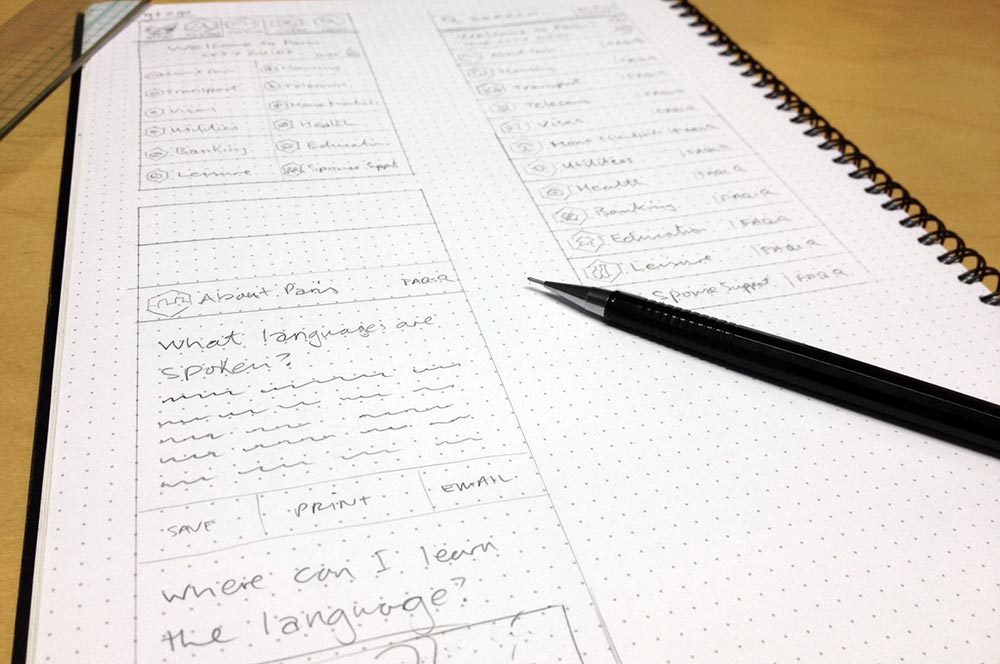 Welcome to Paris
CITY GUIDE
About Paris
Housing
Transport
Telecoms
Visas
Home Essentials
Utilities
Health
Banking
Education
Leisure
Spouse Suppt
About Paris FAQ:Q
What languages are
spoken?
SAVE PRINT EMAIL
where can I learn
the language?
SEARCH
Welcome to Paris
About Paris
Housing
Transport | FAQ:Q
Telecoms | FAQ:Q
Visas | FAQ:Q
Home Essentials | FAQ:Q
Utilities | FAQ:Q
Health | FAQ:Q
Banking | FAQ:Q
Education | FAQ:Q
Leisure | FAQ:Q
Spouse Suppt | FAQ:Q